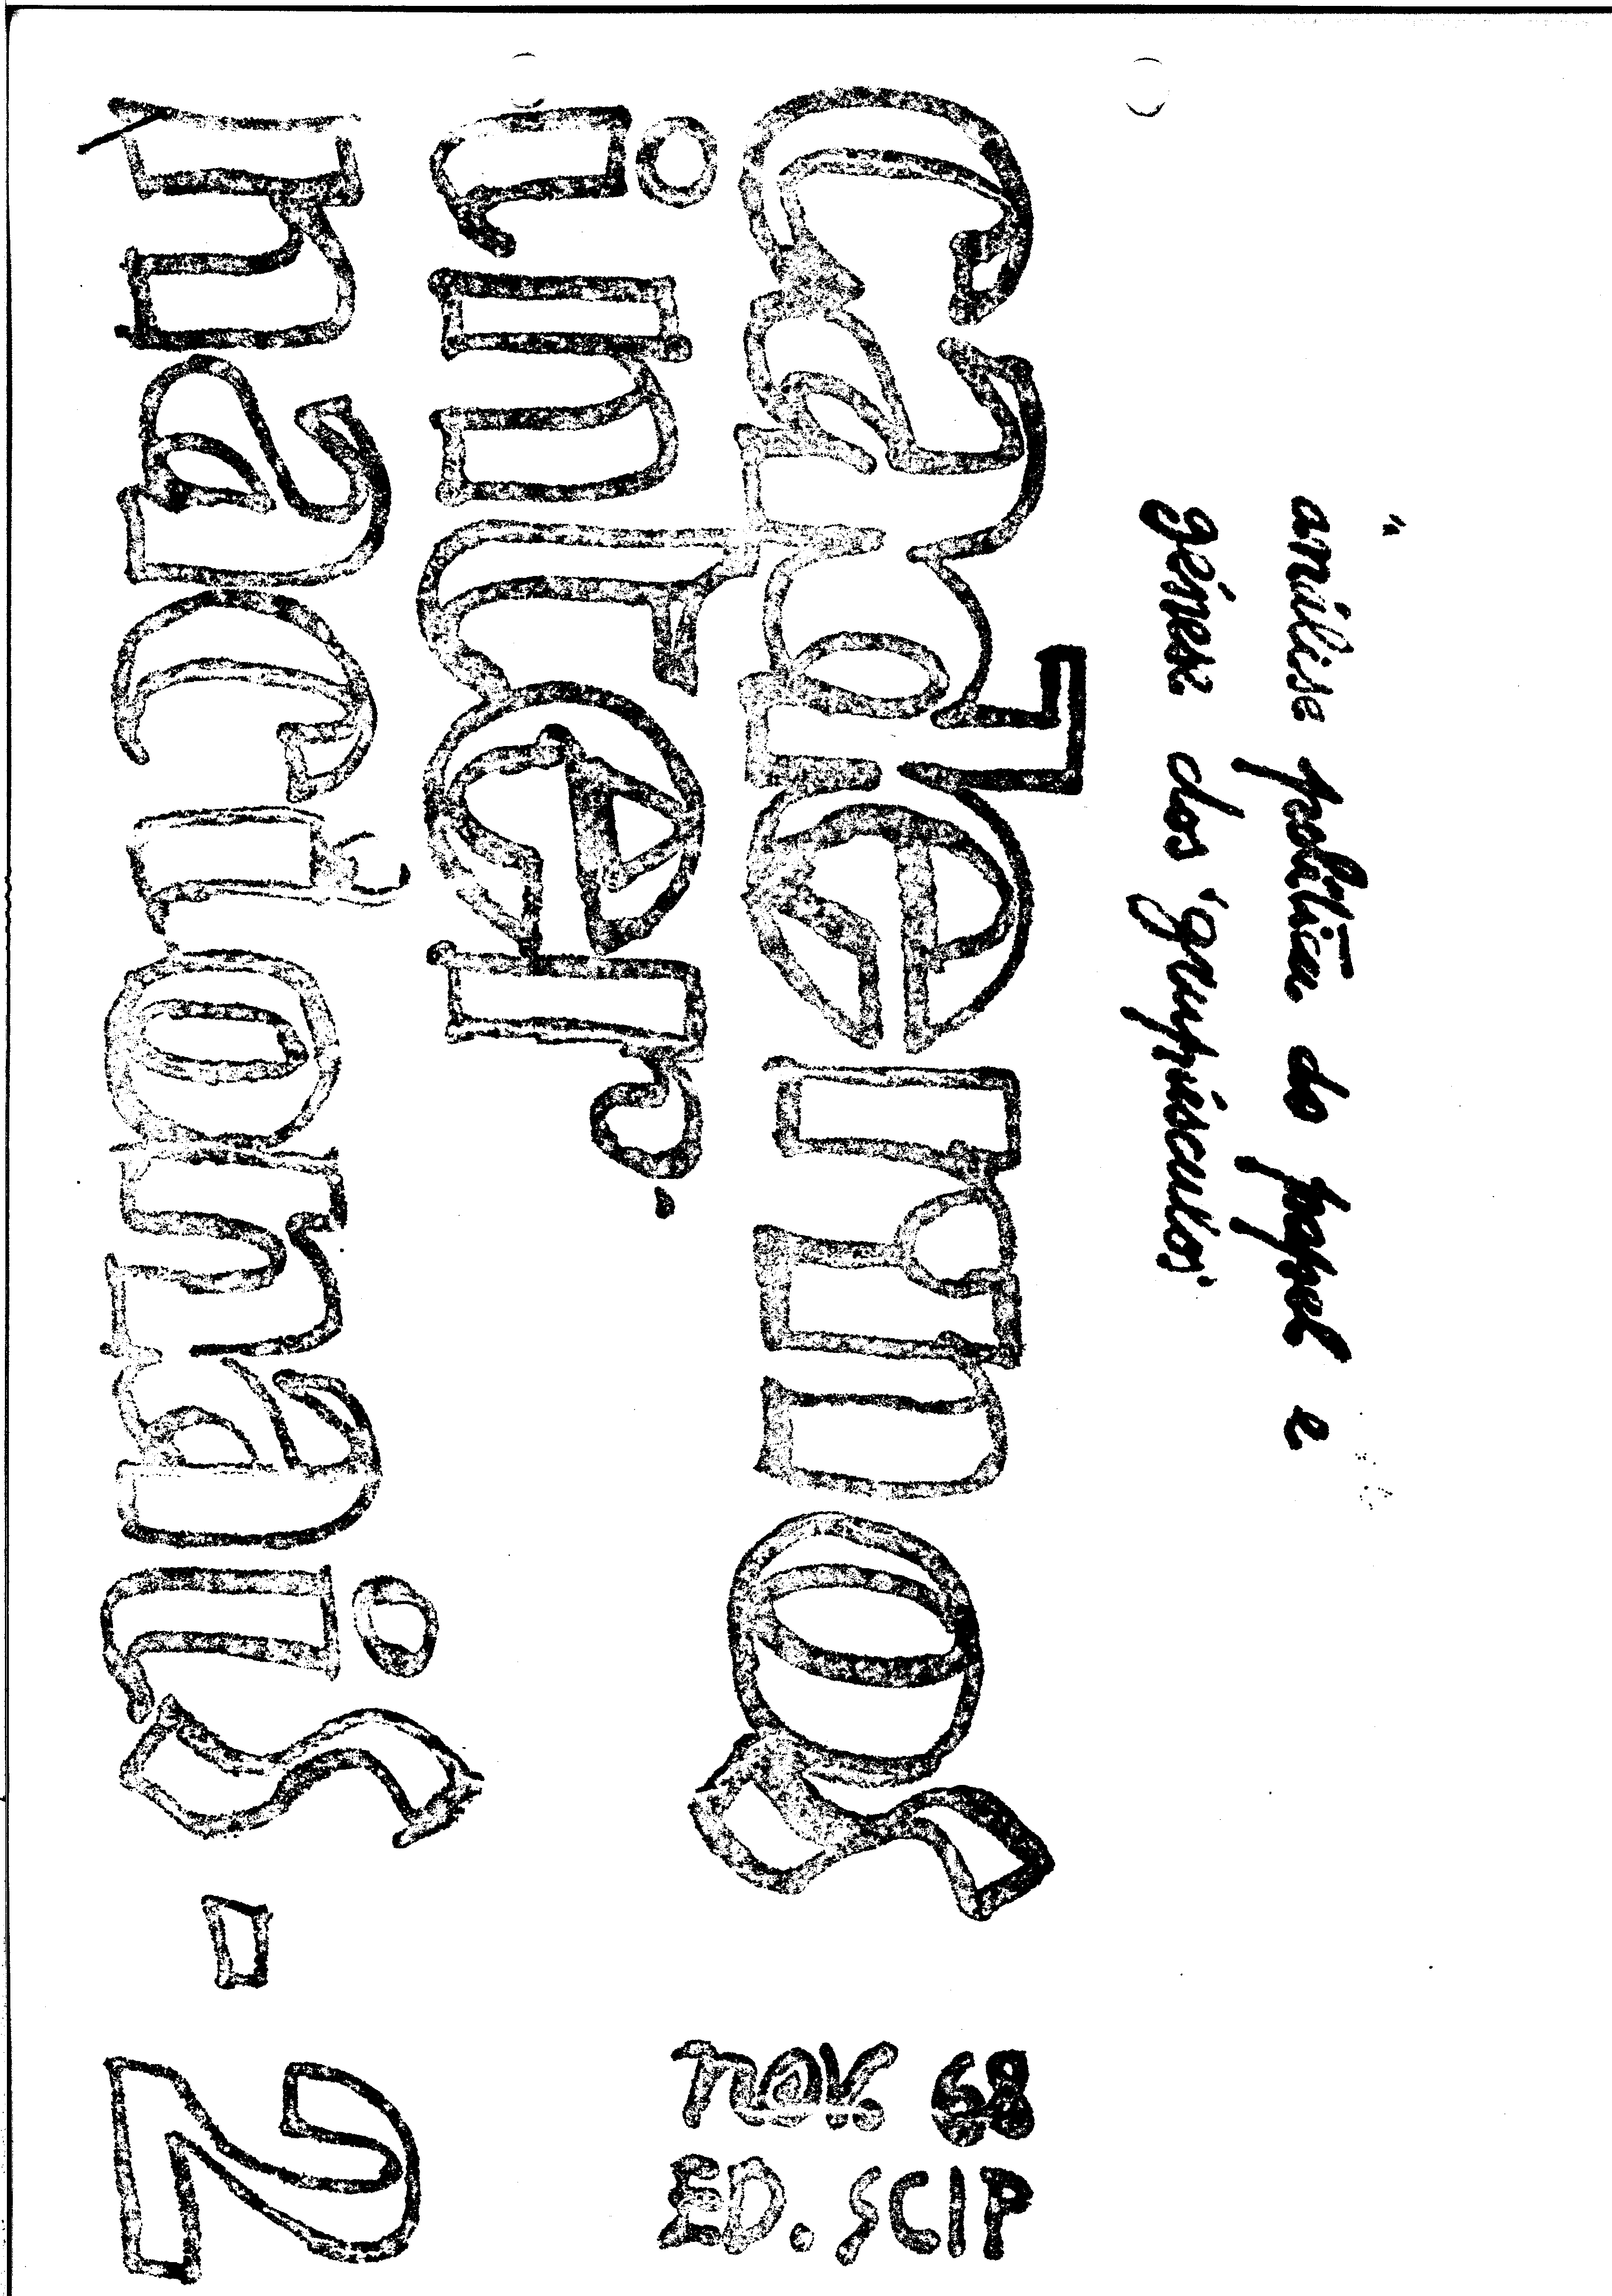 análise política do papel e
génese dos 'grupúsculos'
cadernos
inter.
nacionais - 2
NOV. 68
ED. SCIP